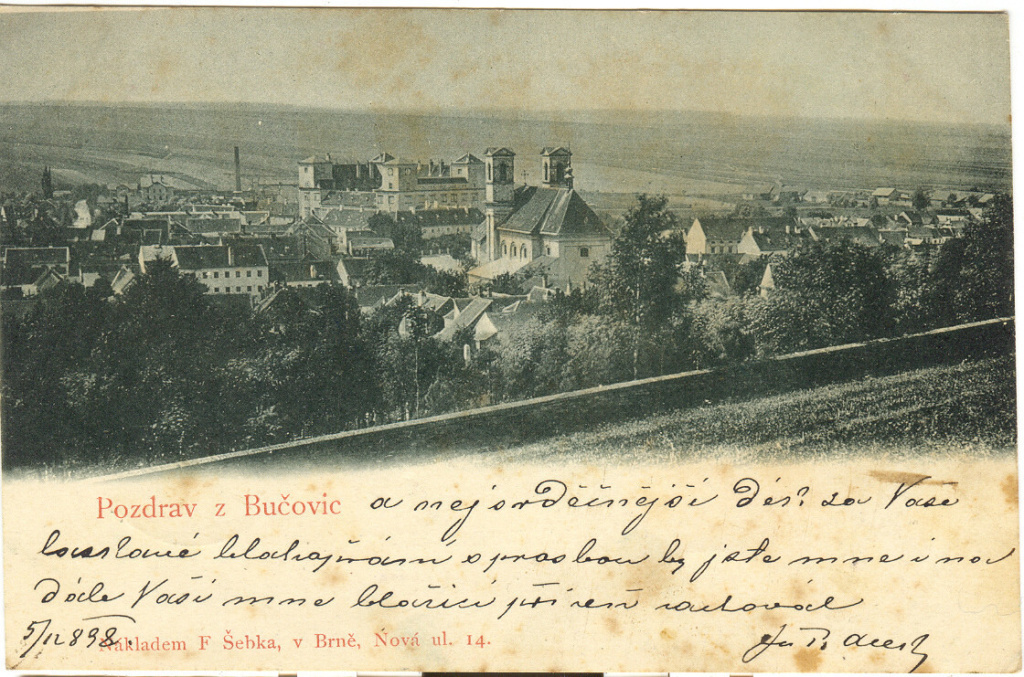 Pozdrav z Bučovic a nejsrděčnější za Vaše
laskavé blahopřání s prosbou by jste mne i na
dále Vaší mne blažící přízeň
5/12 898. Nákladem F Šebka, v Brně, Nová ul. 14.